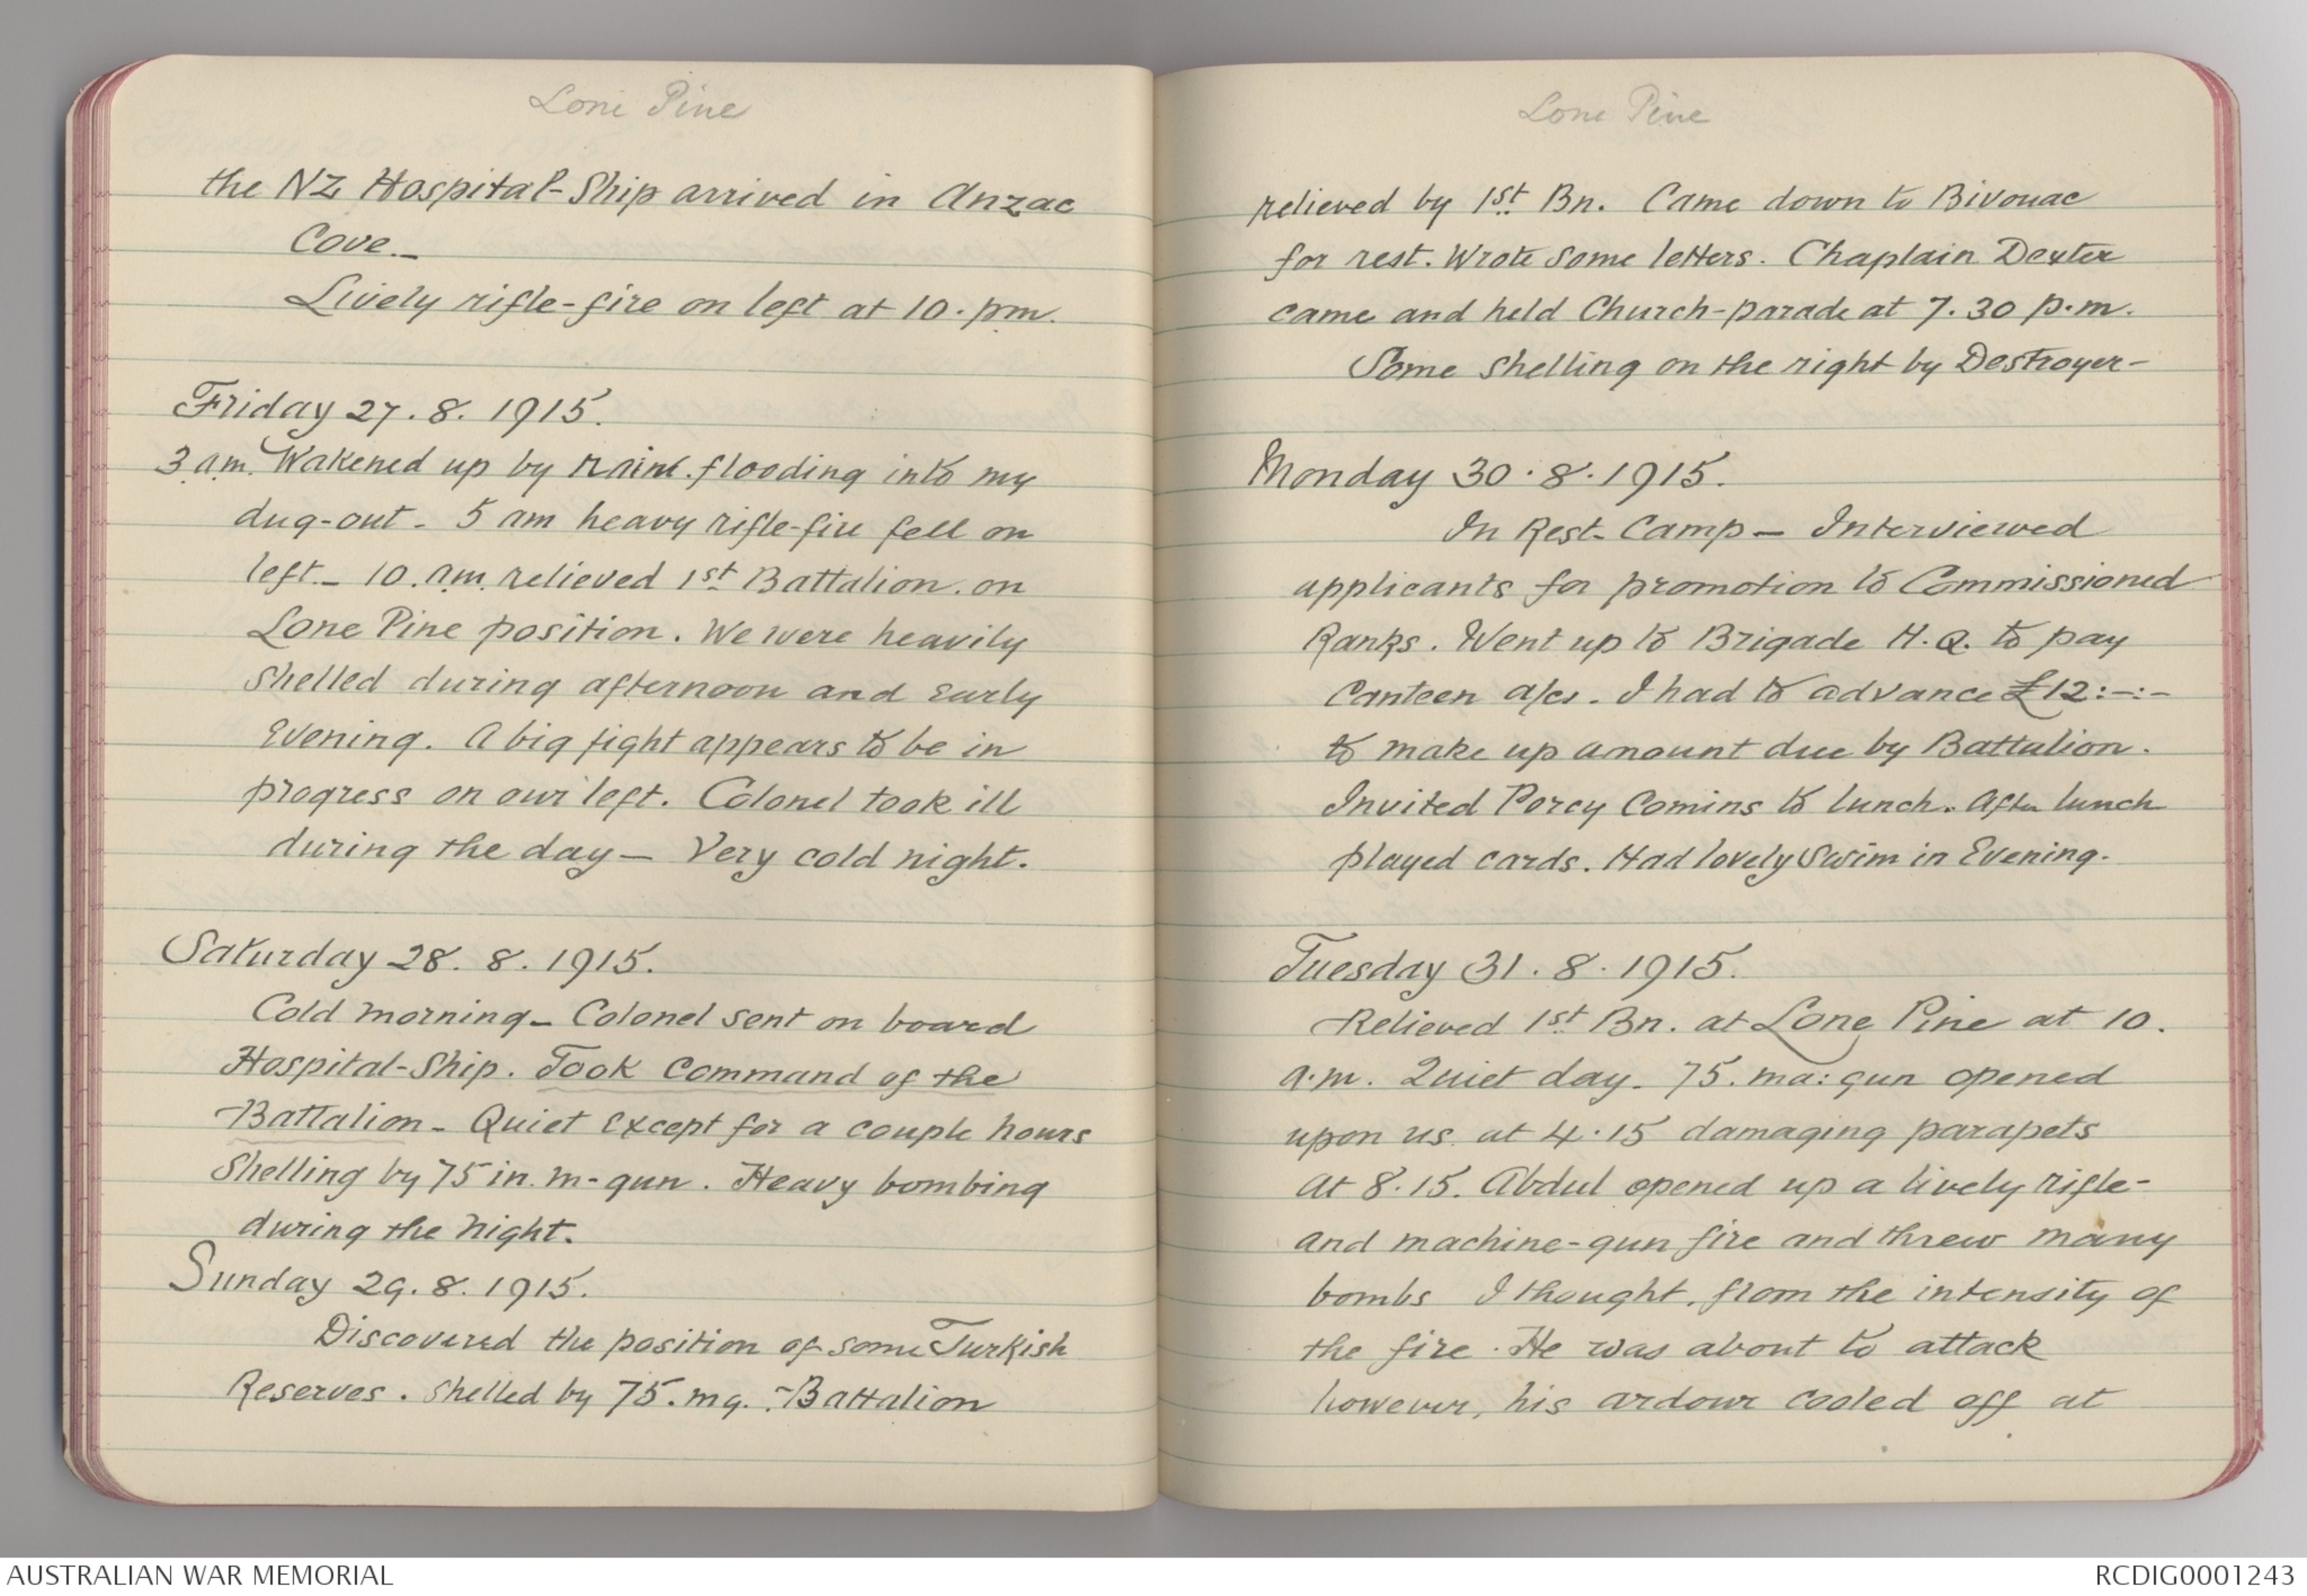 Lone Pine
the NZ Hospital-Ship arrived in Anzac
Cove._
Lively rifle-fire on left at 10.pm.
Friday 27.8.1915.
3 am. Wakened up by rain flooding into my
dug-out - 5 am heavy rifle-fire fell on
left._ 10.am. relieved 1st Battalion. on
Lone Pine position. We were heavily
shelled during afternoon and Early
Evening. A big fight appears to be in
progress on our left. Colonel took ill
during the day _ Very cold night.
Saturday 28.8.1915.
Cold morning _ Colonel sent on board
Hospital-Ship. Took Command of the
Battalion _ Quiet Except for a couple hours
Shelling by 75 in. m-gun. Heavy bombing
during the night.
Sunday 29.8.1915.
Discovered the position of some Turkish
Reserves. Shelled by 75.mg. Battalion
Lone Pine
relieved by 1st Bn. Came down to Bivouac
for rest. Wrote some letters. Chaplain Dexter
came and held Church-parade at 7.30 p.m.
Some shelling on the right by Destroyer-
Monday 30.8.1915.
In Rest-Camp _ Interviewed
applicants for promotion to Commissioned
Ranks. Went up to Brigade H.Q. to pay
Canteen a/cs. I had to advance £12:-:-
to make up amount due by Battalion.
Invited Percy Comins to lunch. After lunch
played cards. Had lovely Swim in Evening.
Tuesday 31.8.1915.
Relieved 1st Bn. at Lone Pine at 10.
a.m. Quiet day. 75.ma: gun opened
upon us at 4.15 damaging parapets
at 8.15. Abdul opened up a lively rifle-
and machine-gun fire and threw many
bombs I thought, from the intensity of
the fire. He was about to attack
however, his ardour cooled off at
AUSTRALIAN WAR MEMORIAL
RCDIG0001243